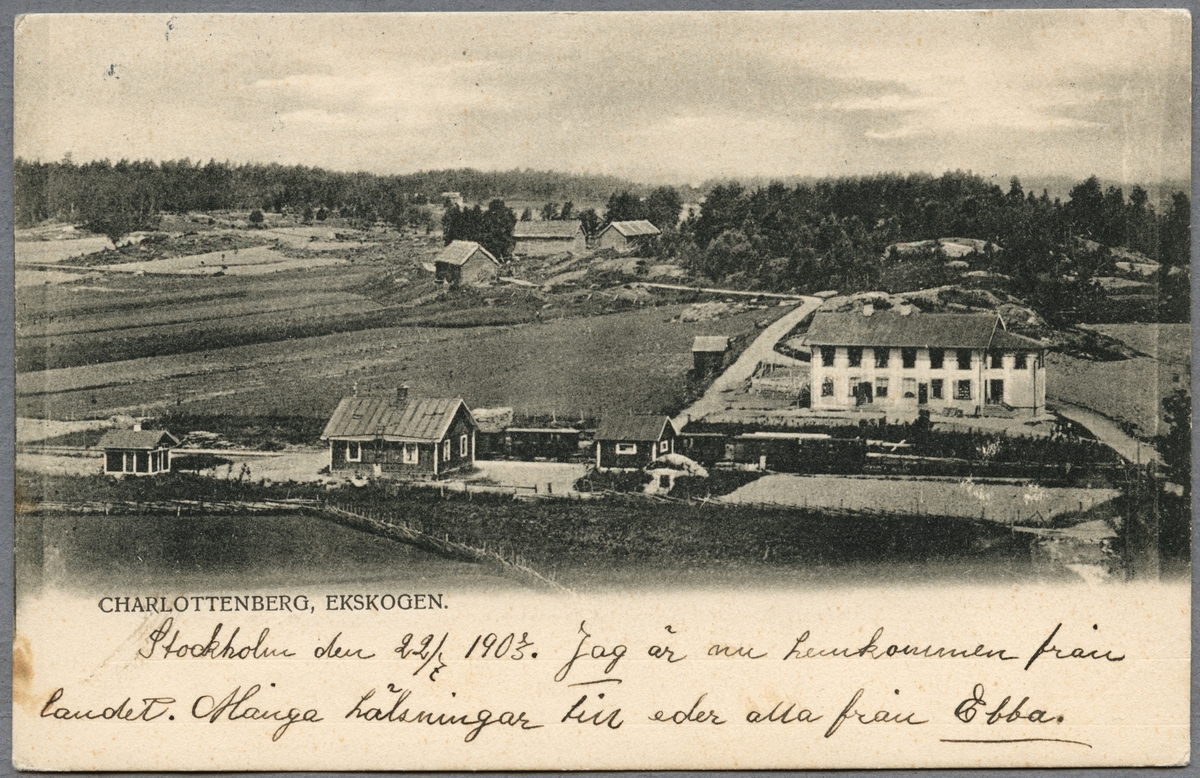 CHARLOTTENBERG, EKSKOGEN.
Stockholm den 22/7 1903. Jag är nu hemkommen från
landet. Många hälsningar till eder alla från Ebba.